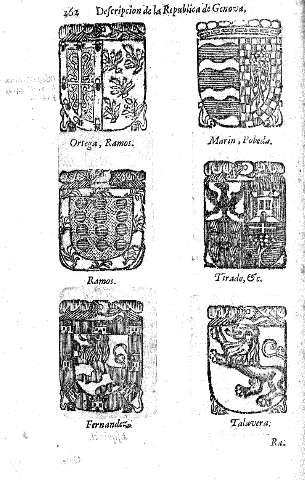 262 Descripcion de la Republica de Genova,
Ortega, Ramos.
Marin, Pobeda.
Ramos.
Tirado, &c.
Fernandez.
Talavera.
Ra-